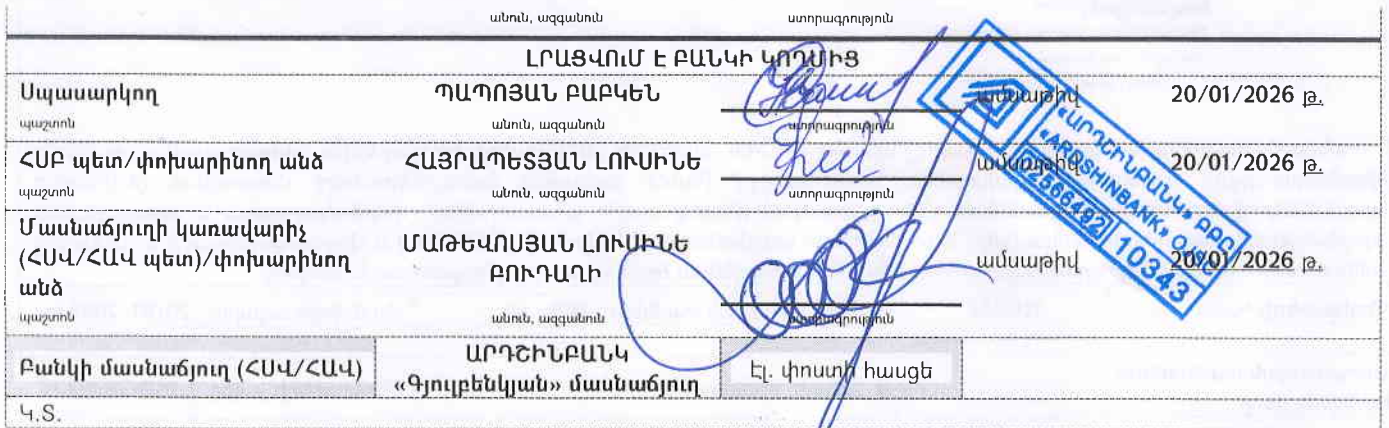 անուն, ազգանուն ստորագրություն
ԼՐԱՑՎՈՒՄ Է ԲԱՆԿԻ ԿՈՂՄԻՑ
Սպասարկող ՊԱՊՈՅԱՆ ԲԱԲԿԵՆ ամսաթիվ 20/01/2026 թ.
պաշտոն անուն, ազգանուն ստորագրություն
ՀՍԲ պետ/փոխարինող անձ ՀԱՅՐԱՊԵՏՅԱՆ ԼՈՒՍԻՆԵ ամսաթիվ 20/01/2026 թ.
պաշտոն անուն, ազգանուն ստորագրություն
Մասնաճյուղի կառավարիչ
(ՀՍՎ/ՀԱՎ պետ)/փոխարինող
անձ
ՄԱԹԵՎՈՍՅԱՆ ԼՈՒՍԻՆԵ
ԲՈՒԴԱՂԻ
ամսաթիվ 20/01/2026 թ.
պաշտոն անուն, ազգանուն ստորագրություն
«ԱՐԴՇԻՆԲԱՆԿ» ՓԲԸ
«ARDSHINBANK» CJSC
02566492 10343
Բանկի մասնաճյուղ (ՀՍՎ/ՀԱՎ) ԱՐԴՇԻՆԲԱՆԿ
«Գյուլբենկյան» մասնաճյուղ
Էլ. փոստի հասցե
Կ.Տ.